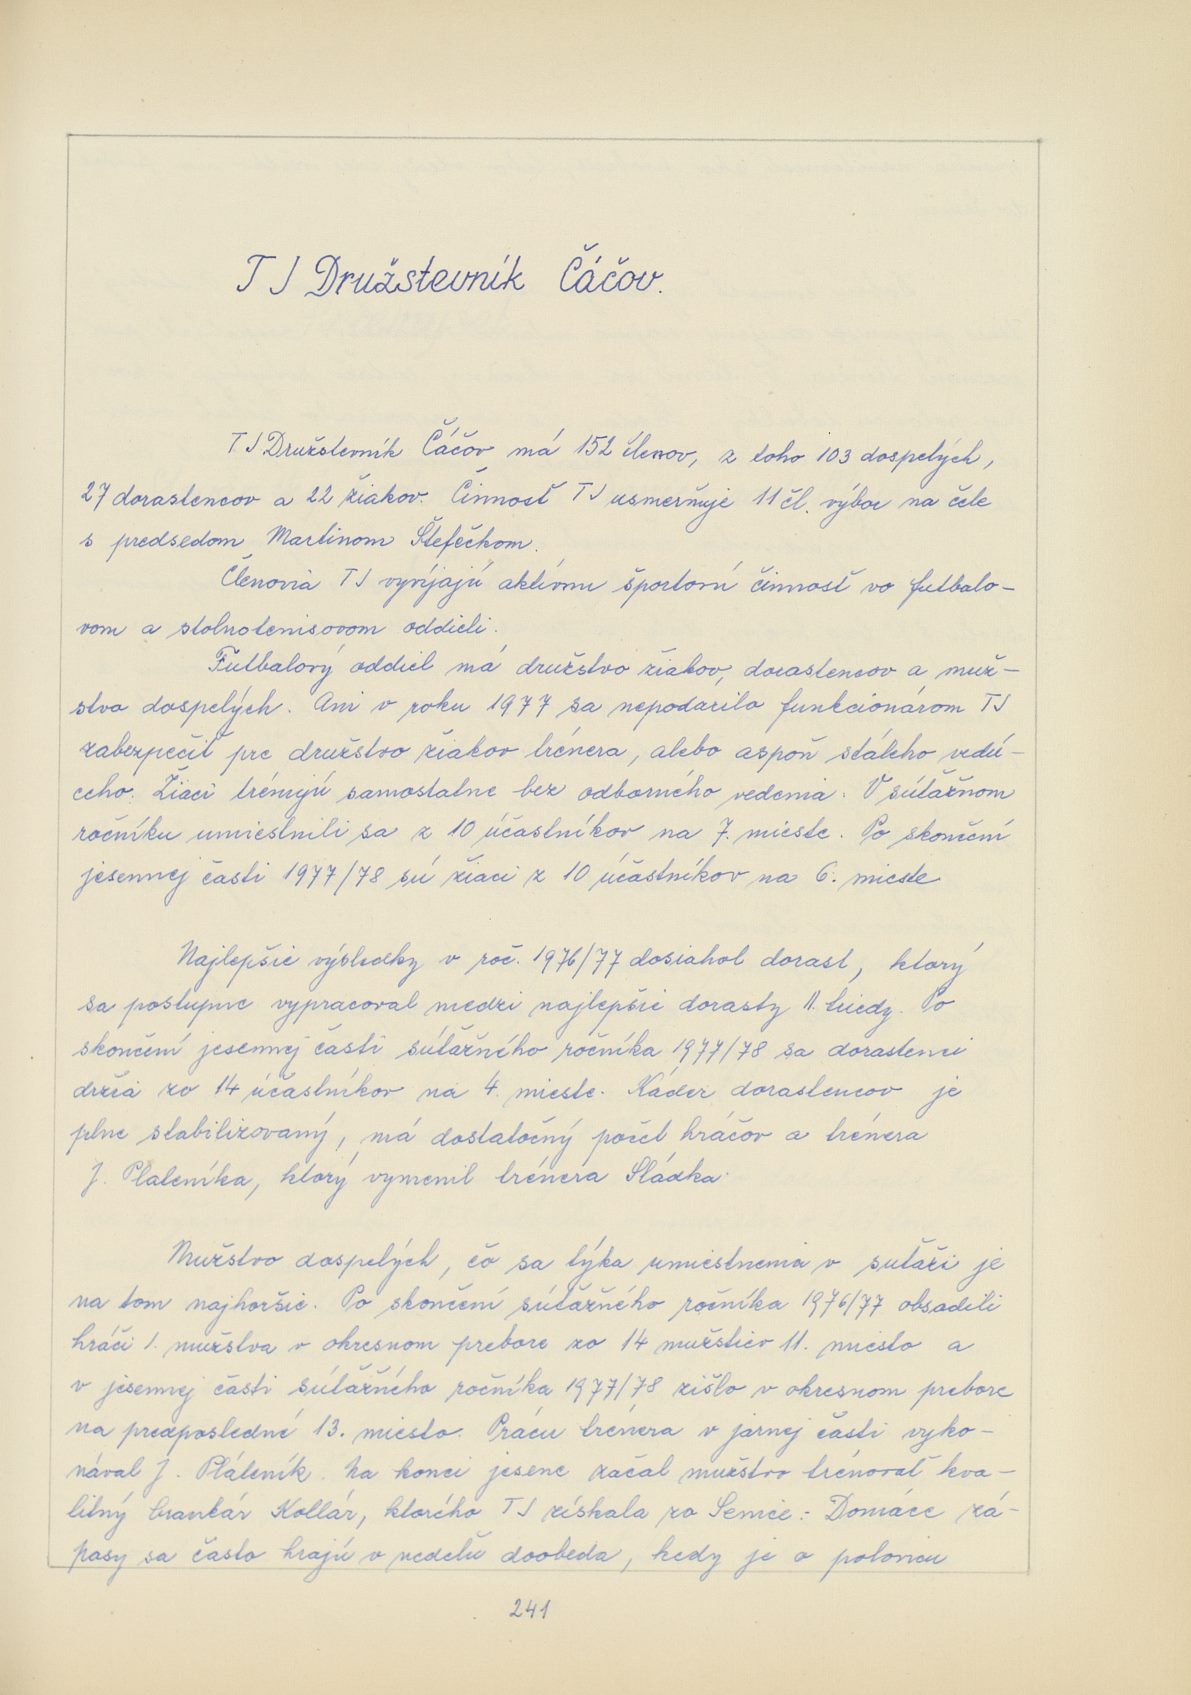 TJ Družstevník Čáčov.
TJ Družstevník Čáčov má 152 členov, z toho 103 dospelých,
27 dorastencov a 22 žiakov. Činnosť TJ usmerňuje 11 čl. výbor na čele
s predsedom Martinom Štefečkom.
Členovia TJ vyvíjajú aktívnu športovú činnosť vo futbalo-
vom a stolnotenisovom oddieli.
Futbalový oddiel má družstvo žiakov, dorastencov a muž-
stvo dospelých. Ani v roku 1977 sa nepodarilo funkcionárom TJ
zabezpečiť pre družstvo žiakov trénera, alebo aspoň stáleho vedú-
ceho. Žiaci trénujú samostatne bez odborného vedenia. V súťažnom
ročníku umiestnili sa z 10 účastníkov na 7. mieste. Po skončení
jesennej časti 1977/78 sú žiaci z 10 účastníkov na 6. mieste
Najlepšie výsledky v roč. 1976/77 dosiahol dorast, ktorý
sa postupne vypracoval medzi najlepšie dorasty II. triedy. Po
skončení jesennej časti súťažného ročníka 1977/78 sa dorastenci
držia zo 14 účastníkov na 4. mieste. Káder dorastencov je
plne stabilizovaný, má dostatočný počet hráčov a trénera
J. Plateníka, ktorý vymenil trénera Sládka.
Mužstvo dospelých, čo sa týka umiestnenia v sutaži je
na tom najhoršie. Po skončení súťažného ročníka 1976/77 obsadili
hráči I. mužstva v okresnom prebore zo 14 mužstiev 11. miesto a
v jesennej časti súťažného ročníka 1977/78 zišlo v okresnom prebore
na predposledné 13. miesto. Prácu trénera v jarnej časti vyko-
nával J. Pláteník. Na konci jesene začal mužstvo trénovať kva-
litný brankár Kollár, ktorého TJ získala zo Senice. Domáce zá-
pasy sa často hrajú v nedeľu doobeda, kedy je o polovicu
241